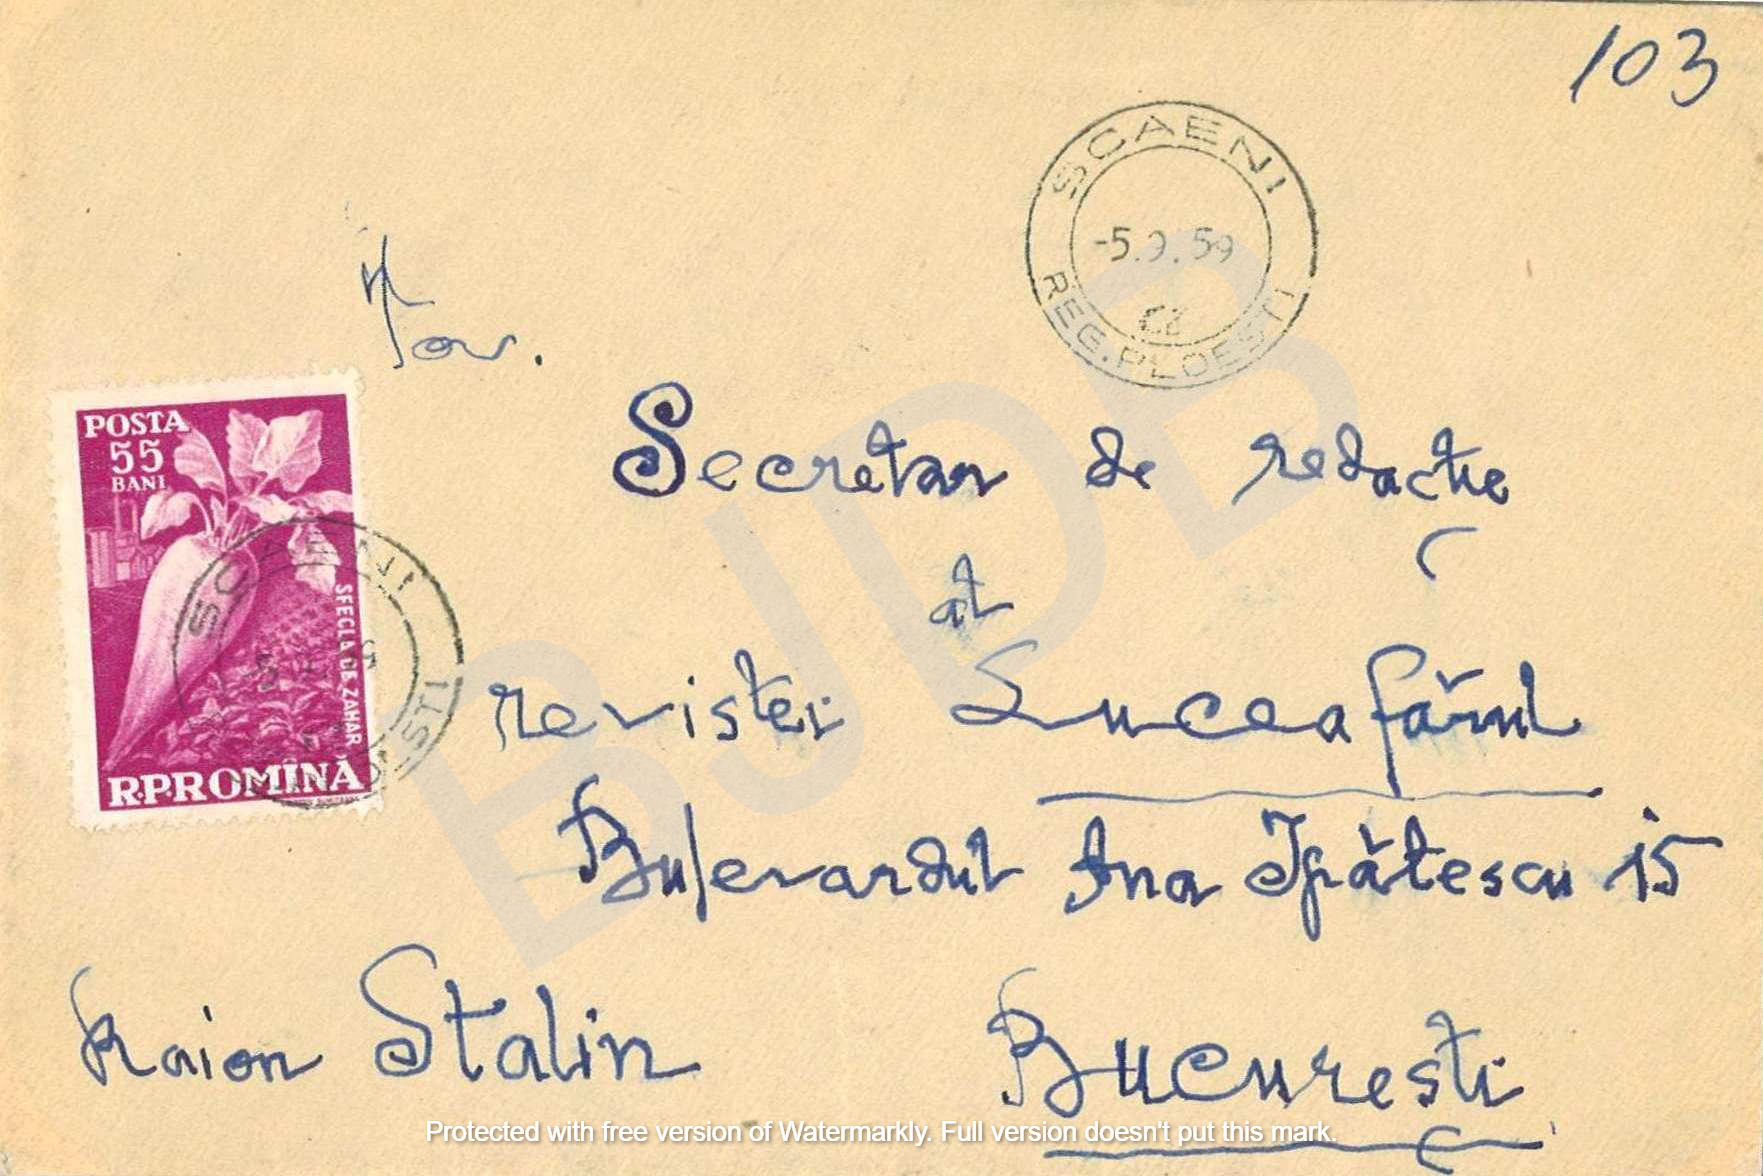 103
SCAENI
-5.9.59
REG. PLOESTI
Tov.
POSTA
55
BANI
Secretar de redacție
al
revistei Luceafărul
SFECLA DE ZAHAR
R.P.ROMÎNĂ
SCAENI
Bulevardul Ana Ipătescu 15
Raion Stalin București
BJDB
Protected with free version of Watermarkly. Full version doesn't put this mark.